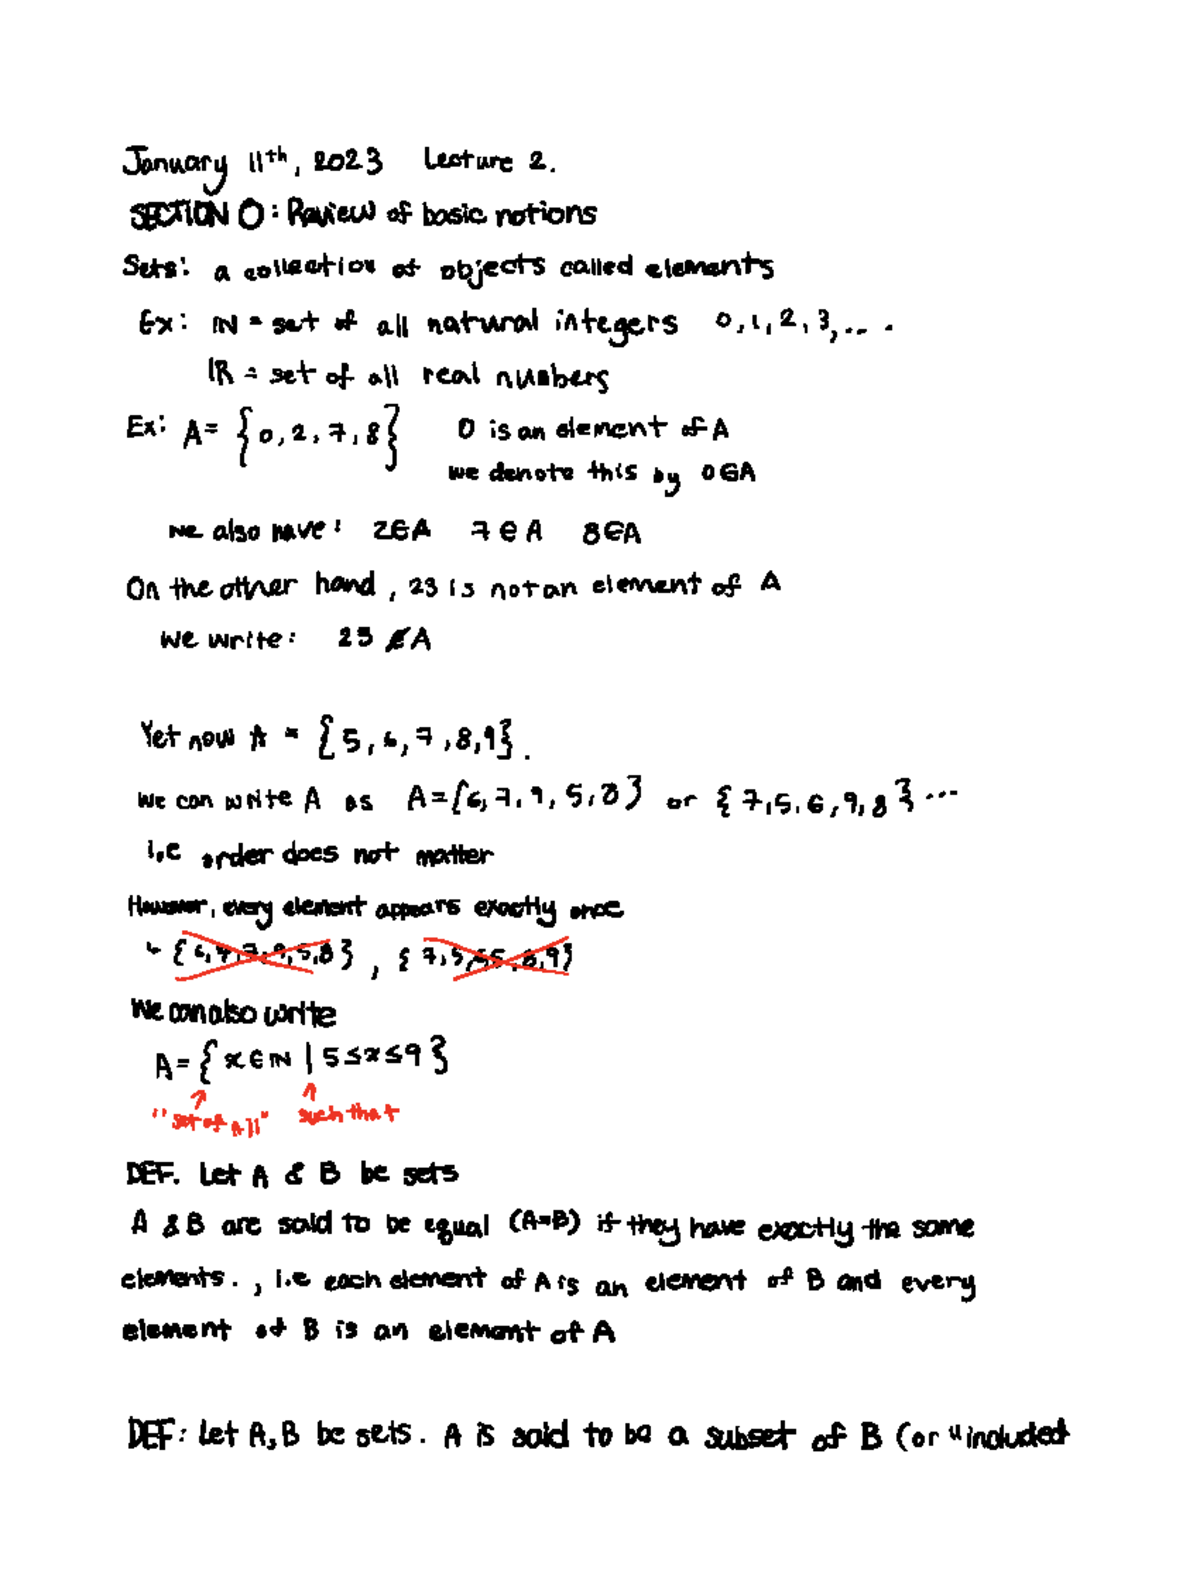 January 11th, 2023 Lecture 2.
SECTION 0: Review of basic notions
Sets: a collection of objects called elements
Ex: ℕ = set of all natural integers 0, 1, 2, 3, ...
ℝ = set of all real numbers
Ex: A = {0, 2, 7, 8} 0 is an element of A
we denote this by 0∈A
we also have: 2∈A 7∈A 8∈A
On the other hand, 23 is not an element of A
We write: 23 ∉ A
Yet now A = {5, 6, 7, 8, 9}.
We can write A as A = {6, 7, 9, 5, 8} or {7, 5, 6, 9, 8} ...
i.e order does not matter
However, every element appears exactly once
We can also write
A = {x ∈ ℕ | 5 ≤ x ≤ 9}
"set of all" such that
DEF. Let A & B be sets
A & B are said to be equal (A=B) if they have exactly the same
elements., i.e each element of A is an element of B and every
element of B is an element of A
DEF: Let A, B be sets. A is said to be a subset of B (or "included